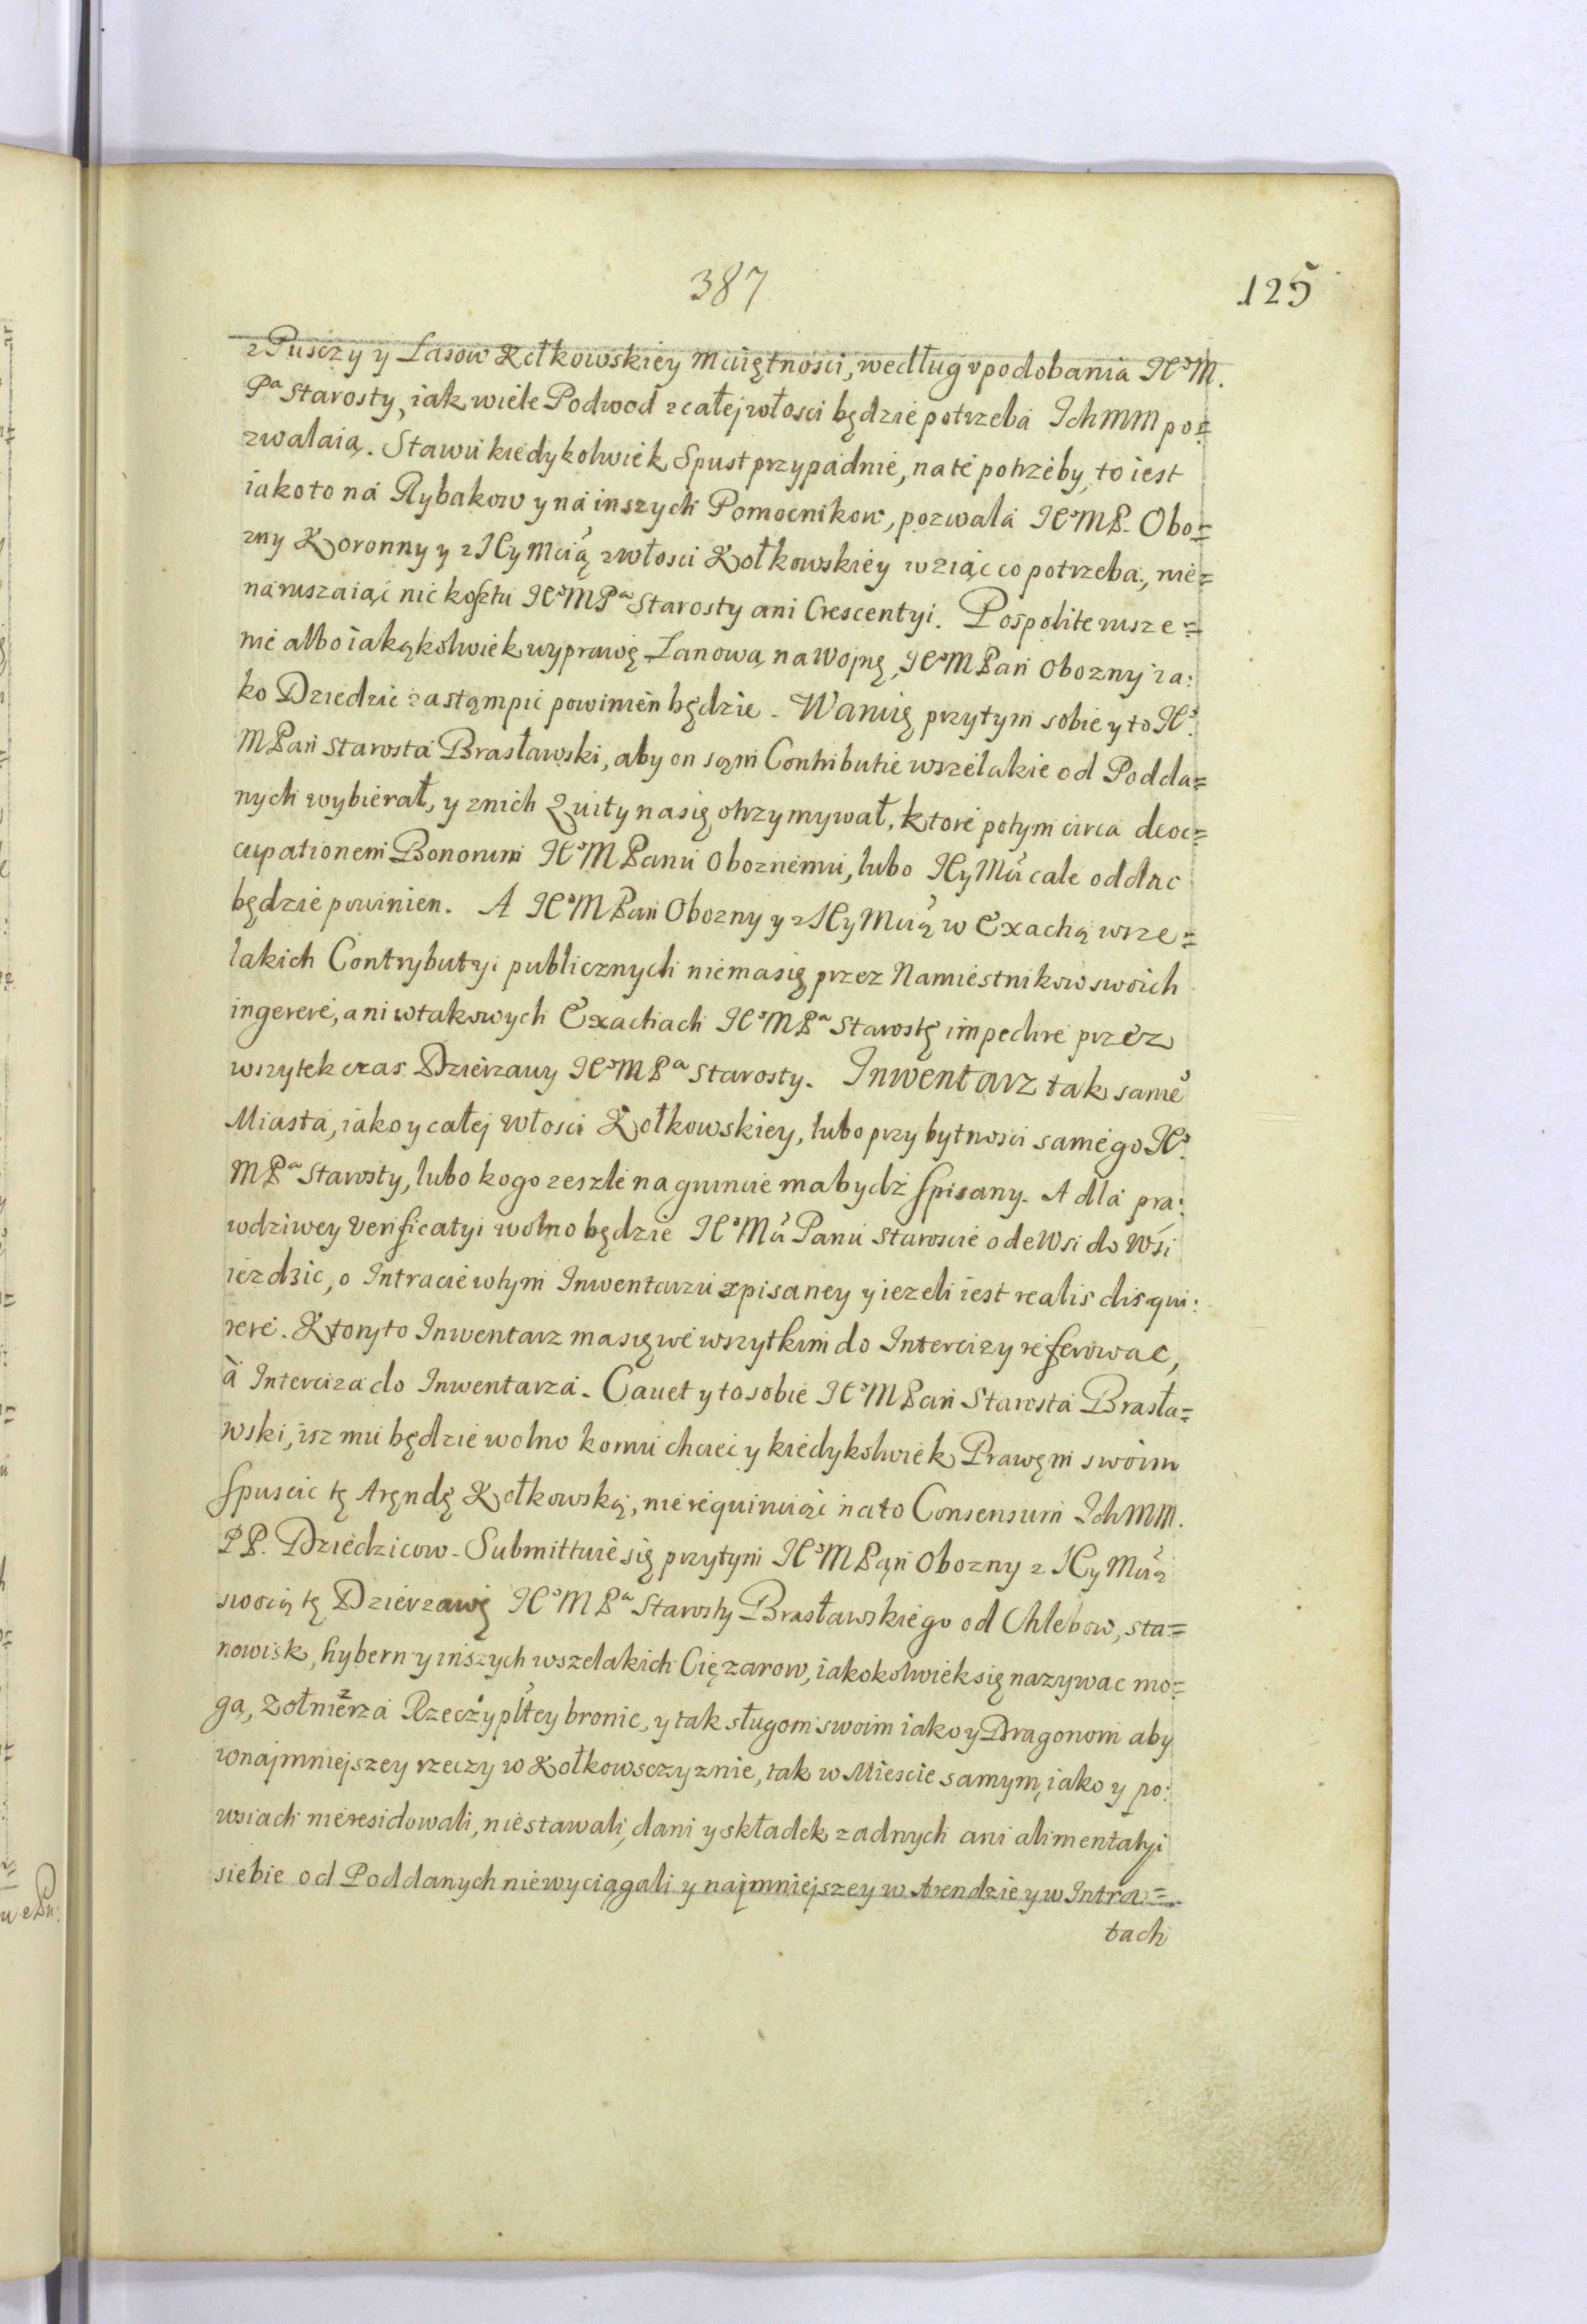 387
125
z Pusczy y Lasow Kołkowskiey Maiętnosci, według vpodobania JeᵒM.
Pᵃ Starosty, iak wiele Podwod z całej włosci będzie potrzeba Ich MM po=
zwalaią. Stawu kiedykolwiek Spust przypadnie, na te potrzeby, to iest
iako to na Rybakow y na inszych Pomocnikow, pozwala JeᵒMP. Obo=
zny Koronny y z JeyMcią z włosci Kołkowskiey wziąc co potrzeba, nie=
naruszaiąc nic kosztu JeᵒMPᵃ Starosty ani Crescentyi. Pospolite rusze=
nie albo iakąkolwiek wyprawę Łanową na Wojnę, JeᵒMPan Obozny ia:
ko Dziedzic zastąmpic powinien będzie. Waruię przytym sobie y to Jeᵒ
MPan Starosta Brasławski, aby on sąm Contributie wszelakie od Podda=
nych wybierał, y z nich Quity na się otrzymywał, ktore potym circa deoc=
cupationem Bonorum JeᵒMPanu Oboznemu, lubo JeyMci cale oddac
będzie powinien. A JeᵒMPan Obozny y z JeyMcią w Exactią wsze=
lakich Contrybutyi publicznych niema się przez Namiestnikow swoich
ingerere, ani w takowych Exactiach JeᵒMPᵃ Starostę impedire przez
wszytek czas Dzierzawy JeᵒMPᵃ Starosty. Inwentarz tak sameᵒ
Miasta, iako y całej Włosci Kołkowskiey, lubo przy bytnosci samego Jeᵒ
MPᵃ Starosty, lubo kogo zeszle na gruncie ma bydź spisany. A dla pra:
wdziwey Verificatyi wolno będzie JeᵒMci Panu Staroscie ode Wsi do Wsi
iezdzic, o Intracie w tym Inwentarzu zpisaney y iezeli iest realis disqui:
rere. Ktoryto Inwentarz ma się we wszytkim do Intercizy referowac,
à Interciza do Inwentarza. Cavet y to sobie JeᵒMPan Starosta Brasła=
wski, isz mu będzie wolno komu chciec y kiedykolwiek Prawęm swoim
spuscic tę Aręndę Kołkowską, nie requiruiąc na to Consensum Ich MM.
PP. Dziedzicow. Submittuie się przytym JeᵒMPąn Obozny z JeyMcią
swoią tę Dzierzawę JeᵒMPᵃ Starosty Brasławskiego od Chlebow, sta=
nowisk, hybern y inszych wszelakich Cięzarow, iakokolwiek się nazywac mo=
gą, Zołnierza Rzeczyplᵗey bronic, y tak sługom swoim iako y Dragonom aby
w najmniejszey rzeczy w Kołkowsczyznie, tak w Miescie samym, iako y po:
wsiach nieresidowali, niestawali, dani y składek zadnych ani alimentatyi
siebie od Poddanych niewyciągali y najmniejszey w Arendzie y w Intra=
tach